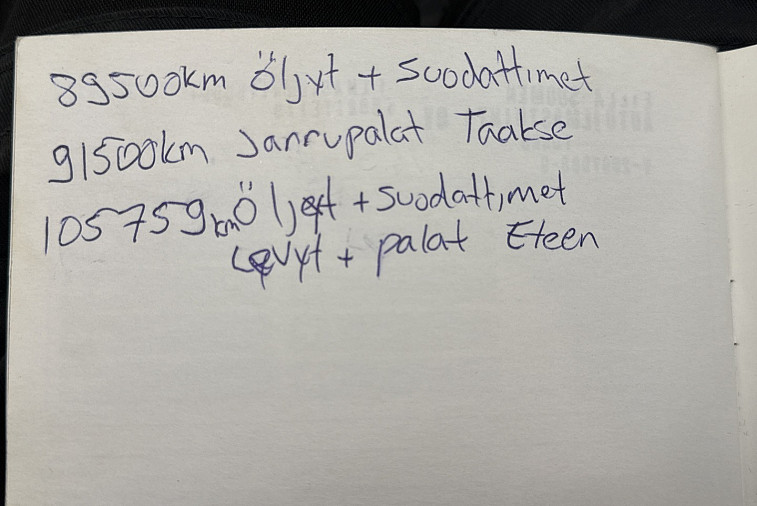 89500km Öljyt + Suodattimet
91500km Jarrupalat Taakse
105759km Öljyt + Suodattimet
Levyt + palat Eteen